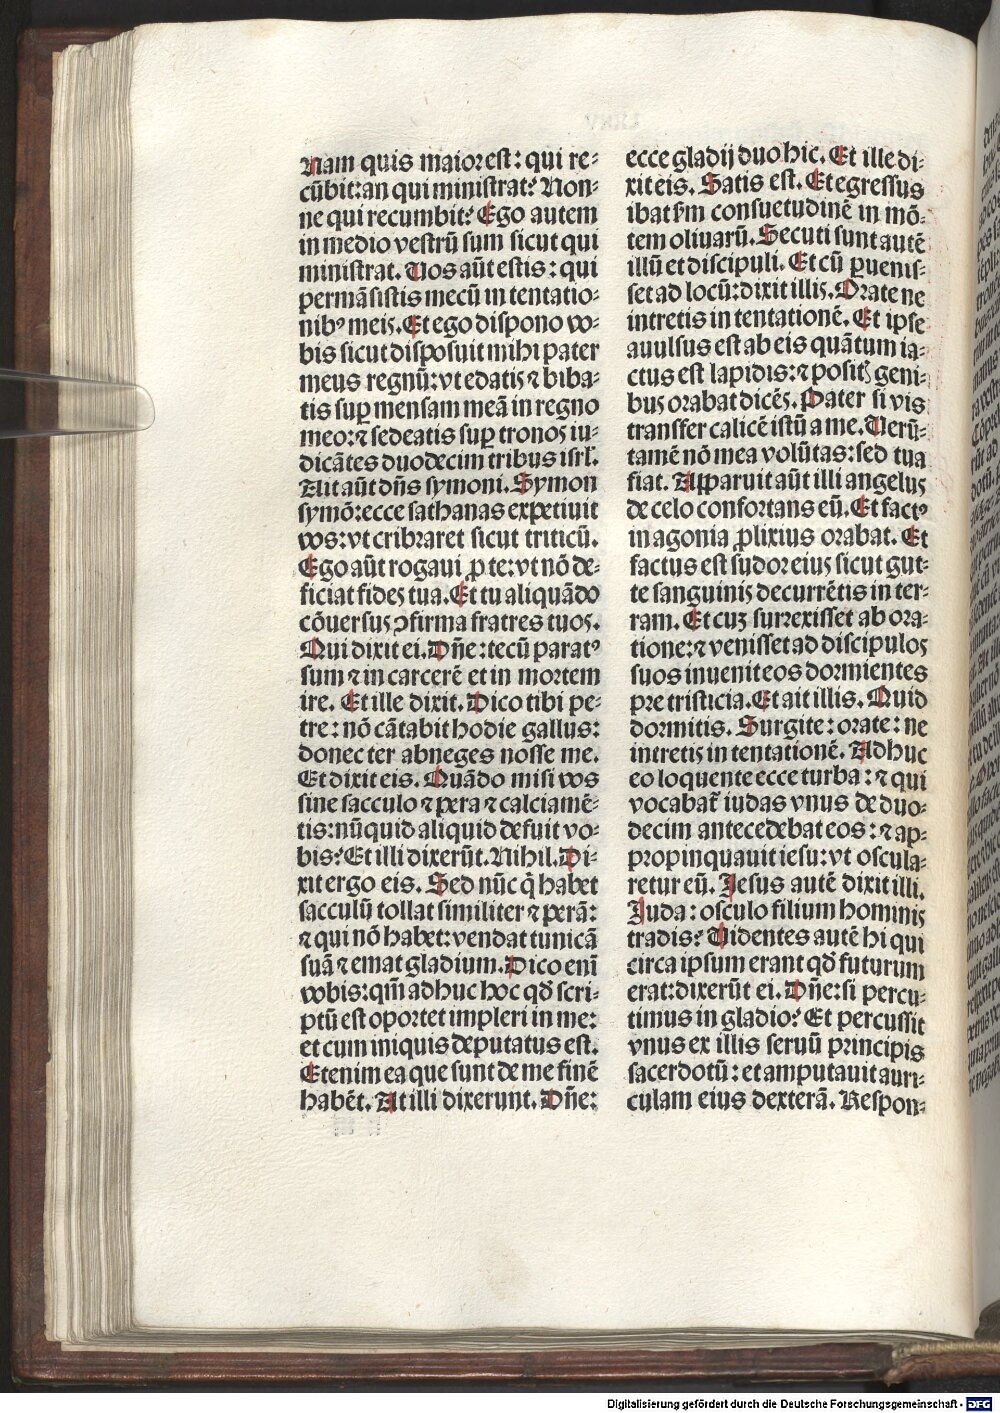 Nam quis maior est: qui re⸗
cūbit: an qui ministrat? Non⸗
ne qui recumbit? Ego autem
in medio vestrū sum sicut qui
ministrat. Vos aūt estis: qui
permāsistis mecū in tentatio⸗
nibꝰ meis. Et ego dispono vo⸗
bis sicut disposuit mihi pater
meus regnū: vt edatis ⁊ biba⸗
tis suꝑ mensam meā in regno
meo: ⁊ sedeatis suꝑ tronos iu⸗
dicātes duodecim tribus isrl̄.
Ait aūt dn̄s symoni. Symon
symō: ecce sathanas expetiuit
vos: vt cribraret sicut triticū.
Ego aūt rogaui ꝓ te: vt nō de⸗
ficiat fides tua. Et tu aliquādo
cōuersus ꝯfirma fratres tuos.
Qui dixit ei. Dn̄e: tecū paratꝰ
sum ⁊ in carcerē et in mortem
ire. Et ille dixit. Dico tibi pe⸗
tre: nō cātabit hodie gallus:
donec ter abneges nosse me.
Et dixit eis. Quādo misi vos
sine sacculo ⁊ pera ⁊ calciamē⸗
tis: nūquid aliquid defuit vo⸗
bis? Et illi dixerūt. Nihil. Di⸗
xit ergo eis. Sed nūc q̇ habet
sacculū tollat similiter ⁊ perā:
⁊ qui nō habet: vendat tunicā
suā ⁊ emat gladium. Dico eni̅
vobis: qm̄ adhuc hoc qd̄ scri⸗
ptū est oportet impleri in me:
et cum iniquis deputatus est.
Etenim ea que sunt de me finē
habēt. At illi dixerunt. Dn̄e:
ecce gladij duo hic. Et ille di⸗
xit eis. Satis est. Et egressus
ibat s̄m consuetudinē in mō⸗
tem oliuarū. Secuti sunt autē
illū et discipuli. Et cū ꝑuenis⸗
set ad locū: dixit illis. Orate ne
intretis in tentationē. Et ipse
auulsus est ab eis quātum ia⸗
ctus est lapidis: ⁊ positꝭ geni⸗
bus orabat dicēs. Pater si vis
transfer calicē istū a me. Verū⸗
tamē nō mea volūtas: sed tua
fiat. Apparuit aūt illi angelus
de celo confortans eū. Et factꝰ
in agonia ꝓlixius orabat. Et
factus est sudor eius sicut gut⸗
te sanguinis decurrētis in ter⸗
ram. Et cuꝫ surrexisset ab ora⸗
tione: ⁊ venisset ad discipulos
suos inuenit eos dormientes
pre tristicia. Et ait illis. Quid
dormitis. Surgite: orate: ne
intretis in tentationē. Adhuc
eo loquente ecce turba: ⁊ qui
vocabat᷑ iudas vnus de duo⸗
decim antecedebat eos: ⁊ ap⸗
propinquauit iesu: vt oscula⸗
retur eū. Jesus autē dixit illi.
Juda: osculo filium hominis
tradis? Videntes autē hi qui
circa ipsum erant qd̄ futurum
erat: dixerūt ei. Dn̄e: si percu⸗
timus in gladio? Et percussit
vnus ex illis seruū principis
sacerdotū: et amputauit auri⸗
culam eius dexterā. Respon⸗
Digitalisierung gefördert durch die Deutsche Forschungsgemeinschaft - DFG